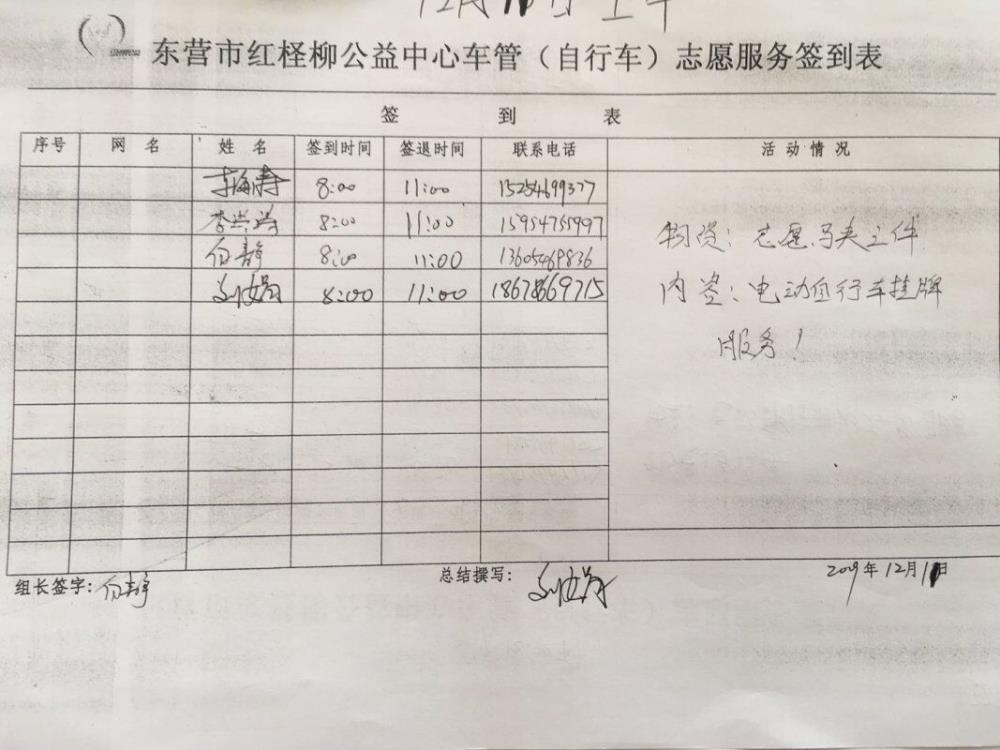 12月 日上午
东营市红柽柳公益中心车管（自行车）志愿服务签到表
签 到 表
序号 网 名 姓 名 签到时间 签退时间 联系电话 活 动 情 况
8:00 11:00 15254699377
李 8:00 11:00 15954755997
白静 8:00 11:00 13605469836
刘 8:00 11:00 18678669715
物资：志愿马夹三件
内容：电动自行车挂牌
服务！
组长签字：白静 总结撰写：刘
2019年12月 日